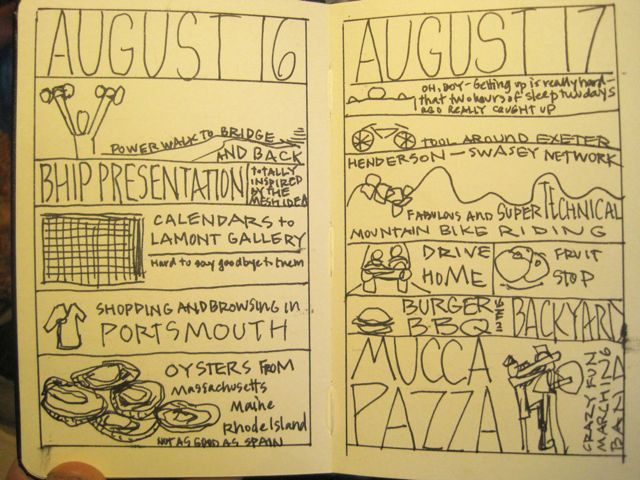 AUGUST 16
POWER WALK TO BRIDGE
AND BACK
BHIP PRESENTATION
TOTALLY
INSPIRED
BY THE
MESH IDEA
CALENDARS to
LAMONT GALLERY
Hard to say goodbye to them
SHOPPING AND BROWSING IN
PORTSMOUTH
OYSTERS FROM
Massachusetts
Maine
Rhode Island
NOT AS GOOD AS SPAIN
AUGUST 17
OH, BOY - Getting up is really hard -
that two hours of sleep two days
AGO REALLY CAUGHT UP
TOOL AROUND EXETER
HENDERSON - SWASEY NETWORK
FABULOUS AND SUPER TECHNICAL
MOUNTAIN BIKE RIDING
DRIVE
HOME
FRUIT
STOP
BURGER
BBQ
IN THE
BACKYARD
MUCCA
PAZZA
CRAZY FUN
MARCHING
BAND